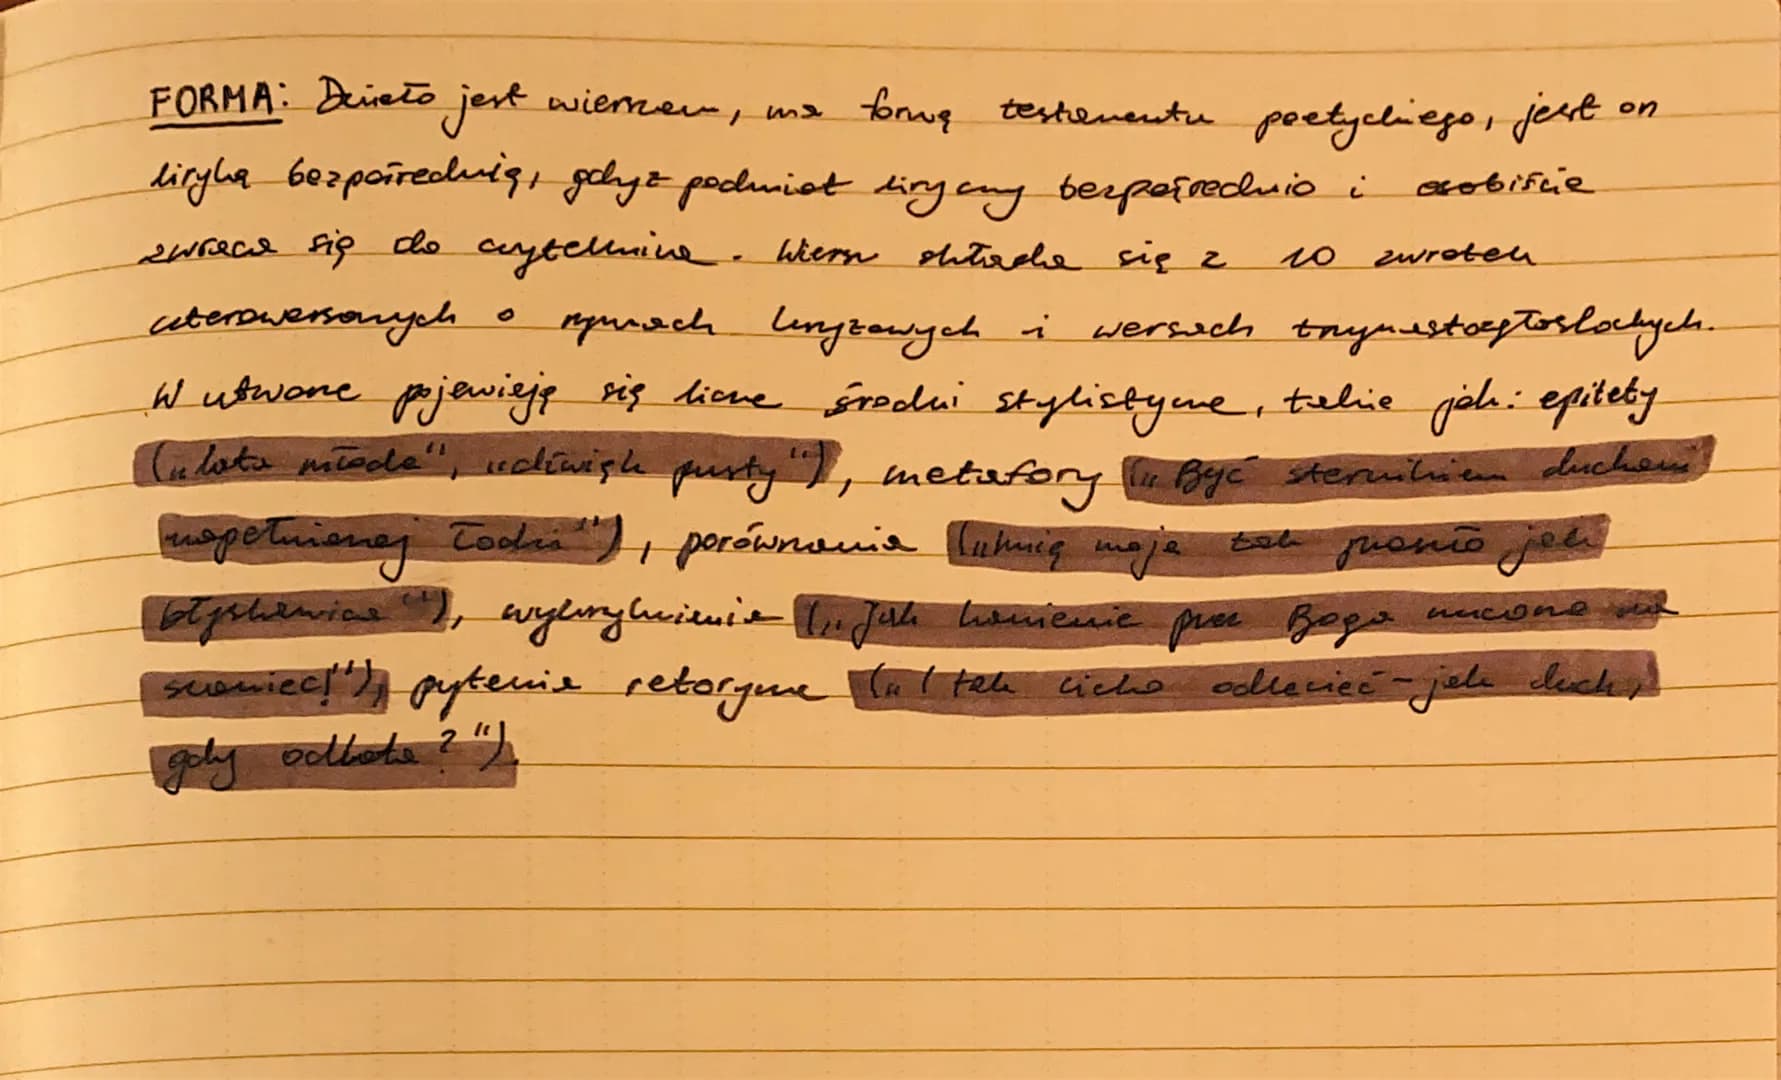 FORMA: Dzieło jest wierszem, ma formę testamentu poetyckiego, jest on
liryką bezpośrednią, gdyż podmiot liryczny bezpośrednio i osobiście
zwraca się do czytelnika. Wiersz składa się z 10 zwrotek
czterowersowych o rymach krzyżowych i wersach trzynastozgłoskowych.
W utworze pojawiają się liczne środki stylistyczne, takie jak: epitety
(„lata młode", „dźwięk pusty"), metafory („Być sternikiem duchami
napełnionej łodzi"), porównania („imię moje tak przeszło jak
błyskawica"), wykrzyknienia („Jak kamienie przez Boga rzucane na
szaniec!"), pytania retoryczne („I tak cicho odlecieć - jak duch,
gdy odlata?").